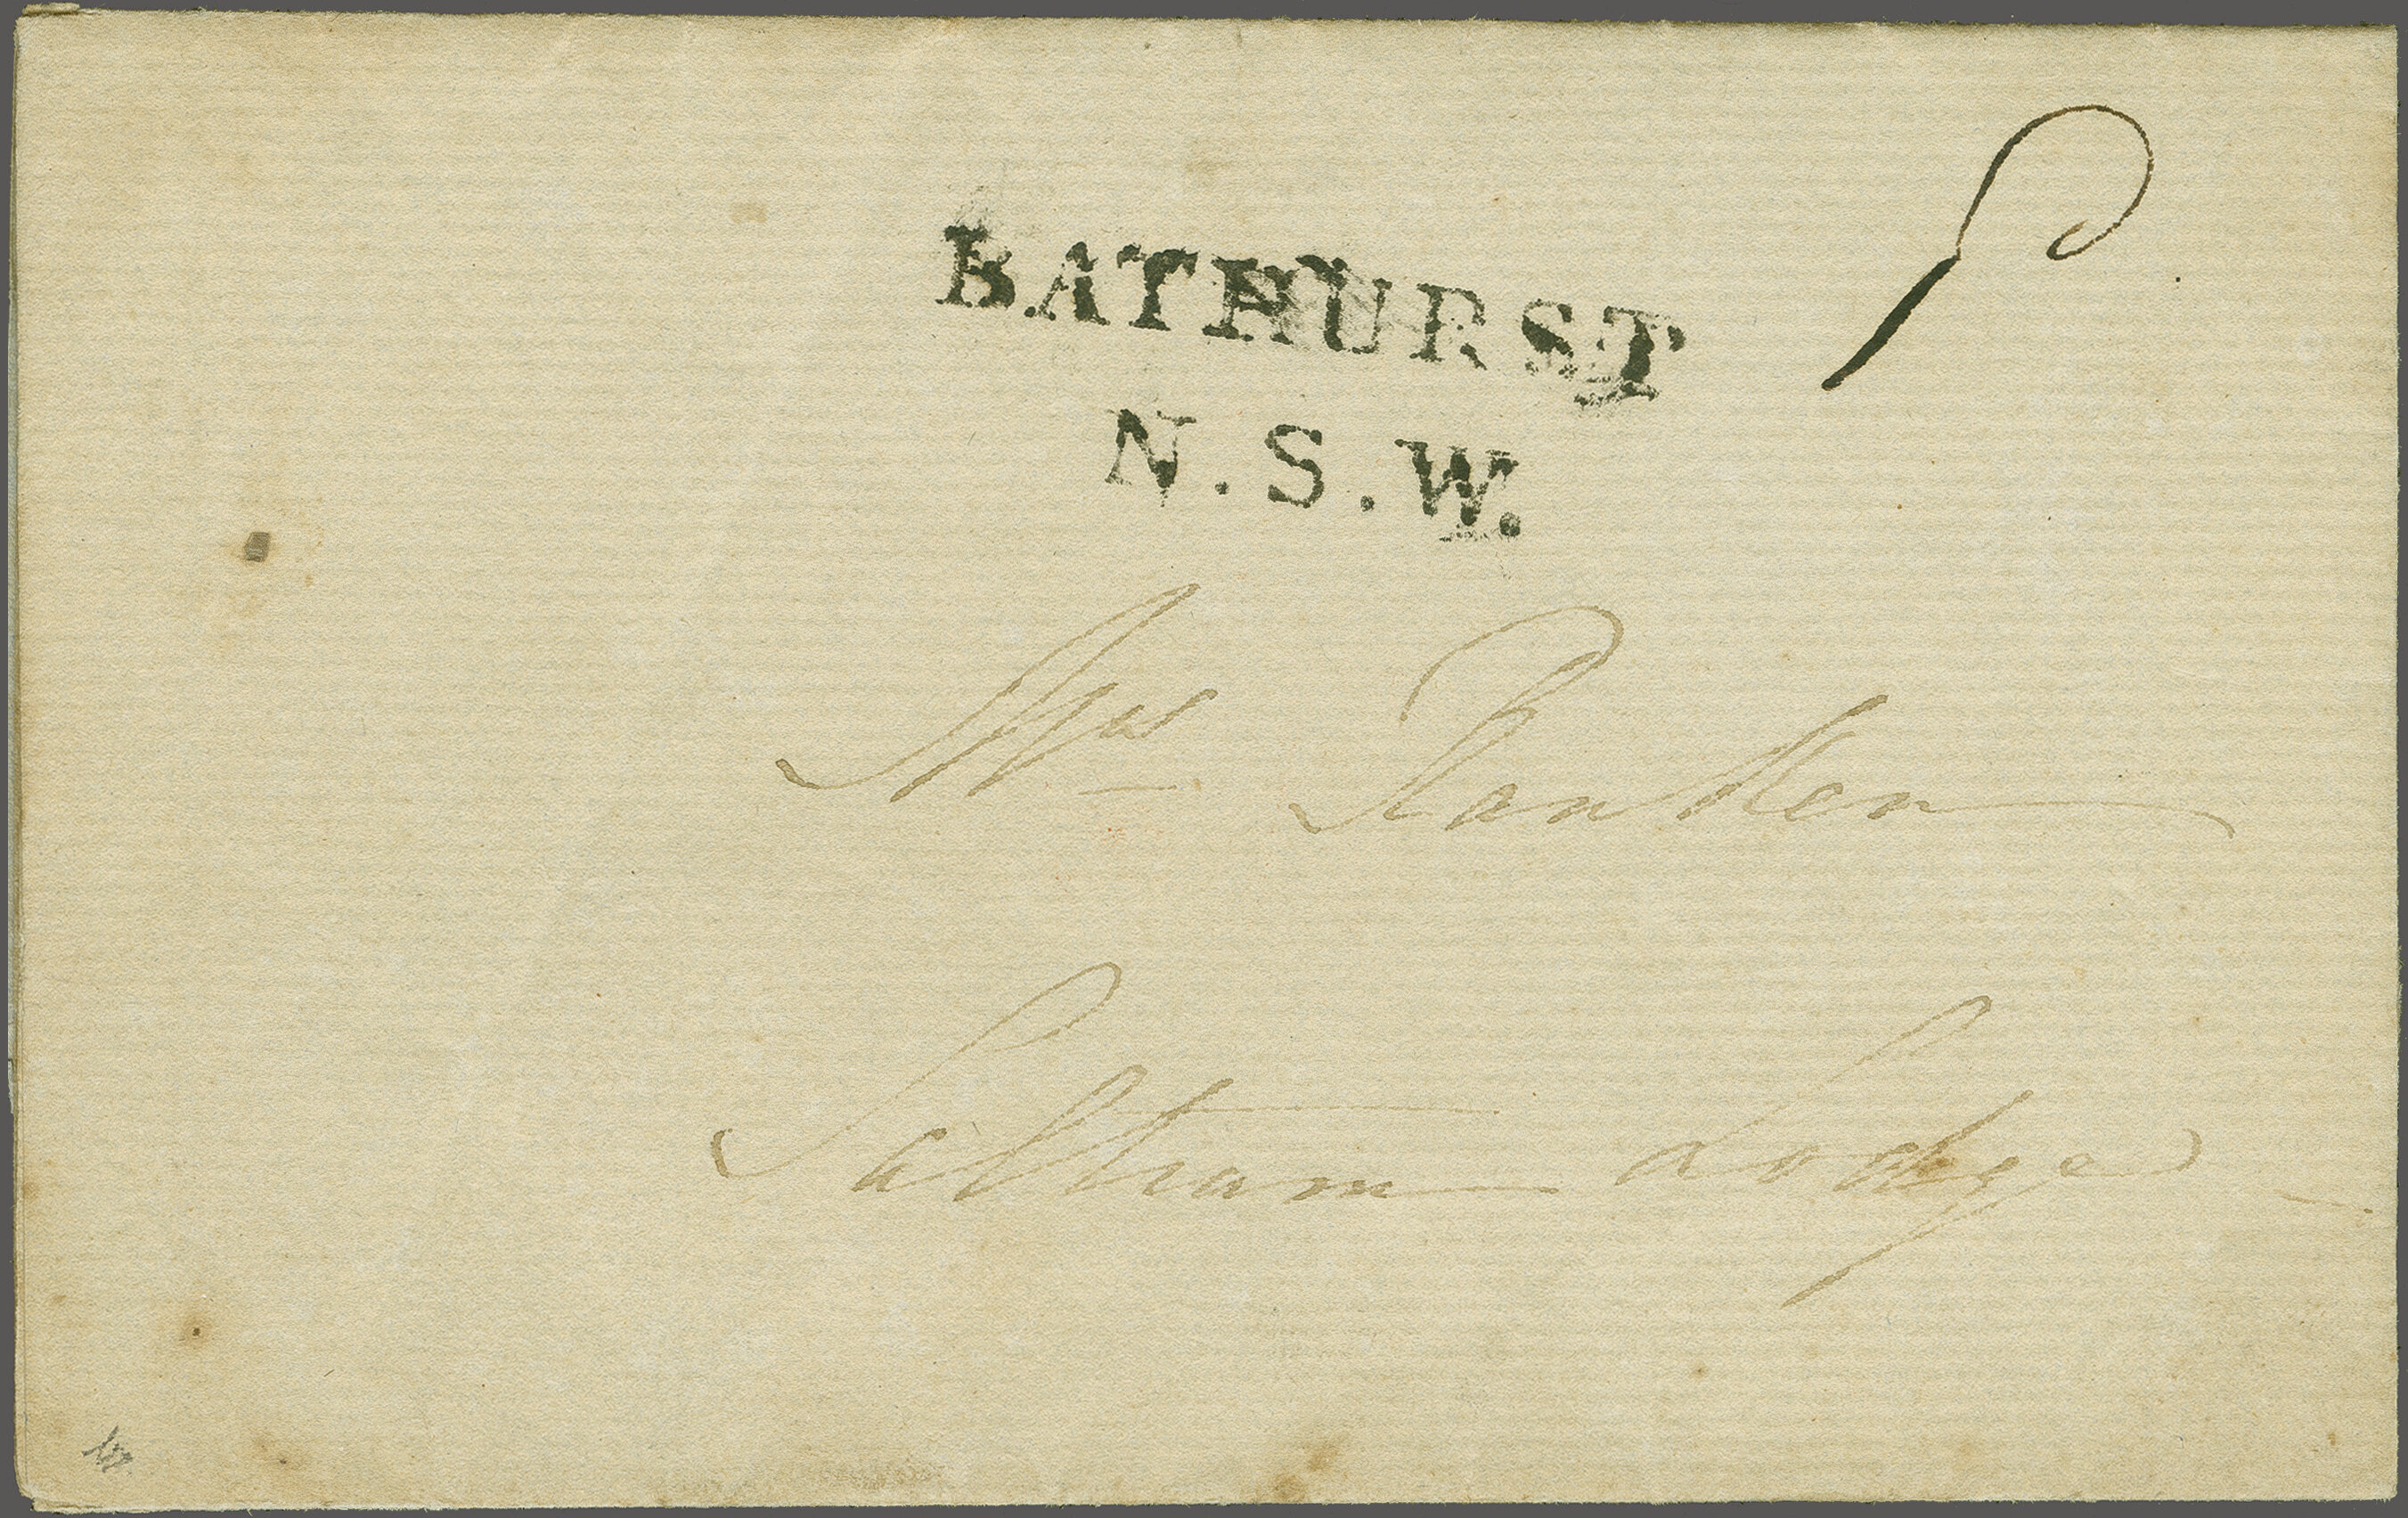 BATHURST
N.S.W.
Mrs Ranken
Saltram Lodge